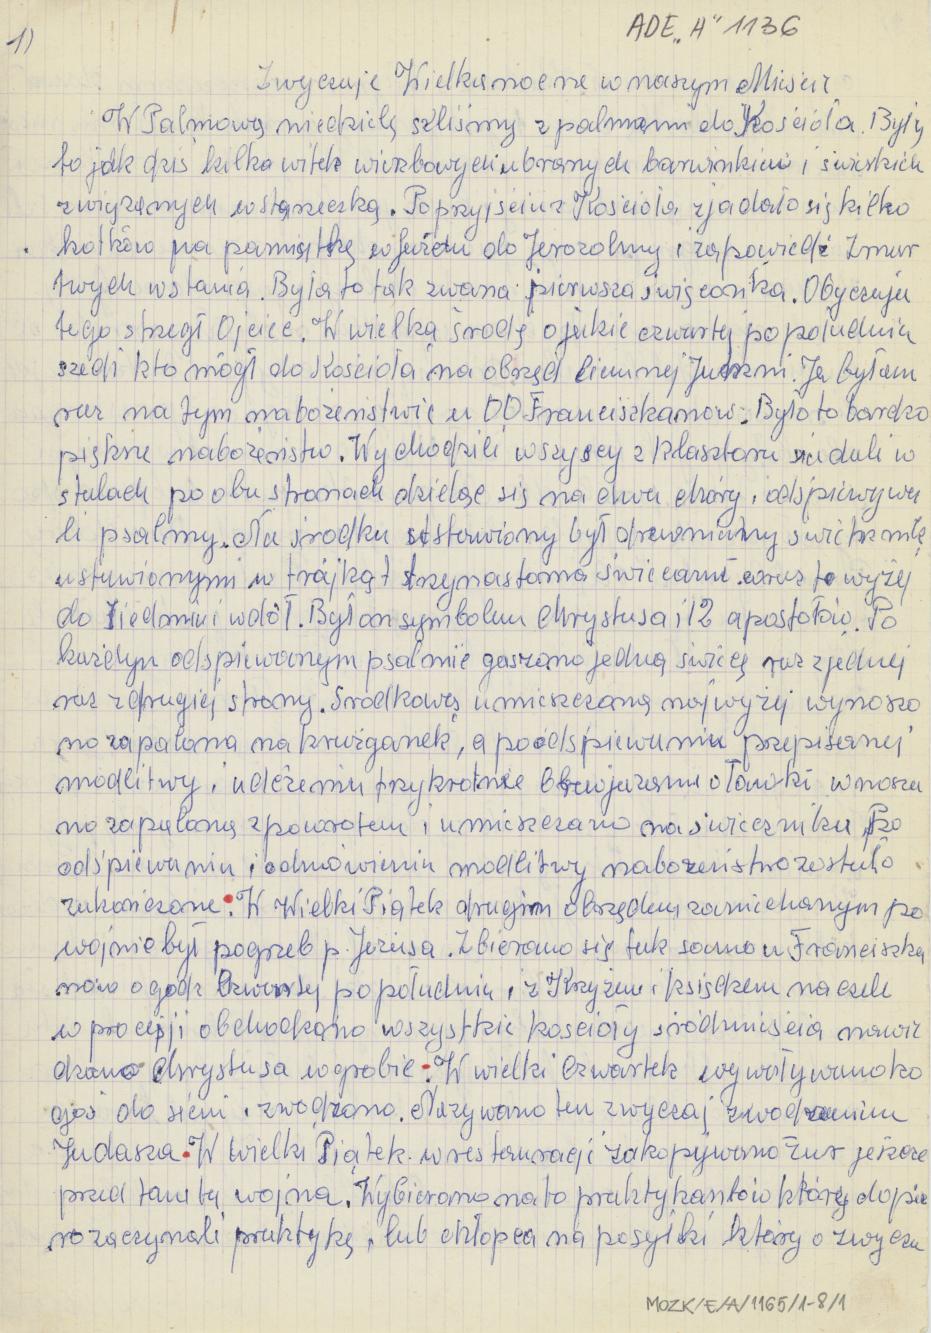 ADE "A" 1136
1)
Zwyczaje Wielkanocne w naszym Mieście
W Palmową niedzielę szliśmy z palmami do Kościoła. Były
to jak dziś kilka witek wierzbowych ubranych barwinkiem i
związanych wstążeczką. Po przyjściu z Kościoła zjadało się kilko
kotków na pamiątkę wjazdu do Jerozolmy i zapowiedź Zmar
twych wstania. Była to tak zwana pierwsza święconka. Obyczaju
tego strzegł Ojciec. W wielką środę o jakie czwartej po południu
szedł kto mógł do Kościoła na obrzęd ciemnej Jutrzni. Ja byłam
raz na tym nabożeństwie u OO Franciszkanów. Było to bardzo
piękne nabożeństwo. Wychodzili wszyscy z klasztoru siadali w
stalach po obu stronach dzieląc się na dwa chóry i odśpiewywa
li psalmy. Na środku ustawiony był drewniany świecznik z
ustawionymi w trójkąt trzynastoma świecami coraz to wyżej
do siedmiu i w dół. Był on symbolem Chrystusa i 12 apostołów. Po
każdym odśpiewanym psalmie gaszono jedną świecę raz z jednej
raz z drugiej strony. Środkową umieszczaną najwyżej wynoszo
no zapaloną na krużganek, a po odśpiewaniu przepisanej
modlitwy i uderzeniu trzykrotnie o ławki wnoszo
no zapaloną z powrotem i umieszczano na świeczniku Po
odśpiewaniu i odmówieniu modlitwy nabożeństwo zostało
zakończone. W Wielki Piątek drugim obrzędem zaniechanym po
wojnie był pogrzeb p. Jezusa. Zbierano się tak samo u Franciszka
nów o godz czwartej po południu i z Krzyżem i księdzem na czele
w procesji obchodzono wszystkie kościoły śródmieścia nawie
dzano Chrystusa w grobie. W wielki Czwartek wywoływano ko
goś do sieni i zwodzono. Nazywano ten zwyczaj zwodzeniem
Judasza. W wielki Piątek w restauracji zakopywano żur jeszcze
przed tamtą wojną. Wybierano na to praktykantów którzy dopie
ro zaczynali praktykę, lub chłopca na posyłki który o zwycza
MOZK/E/A/1165/1-8/1